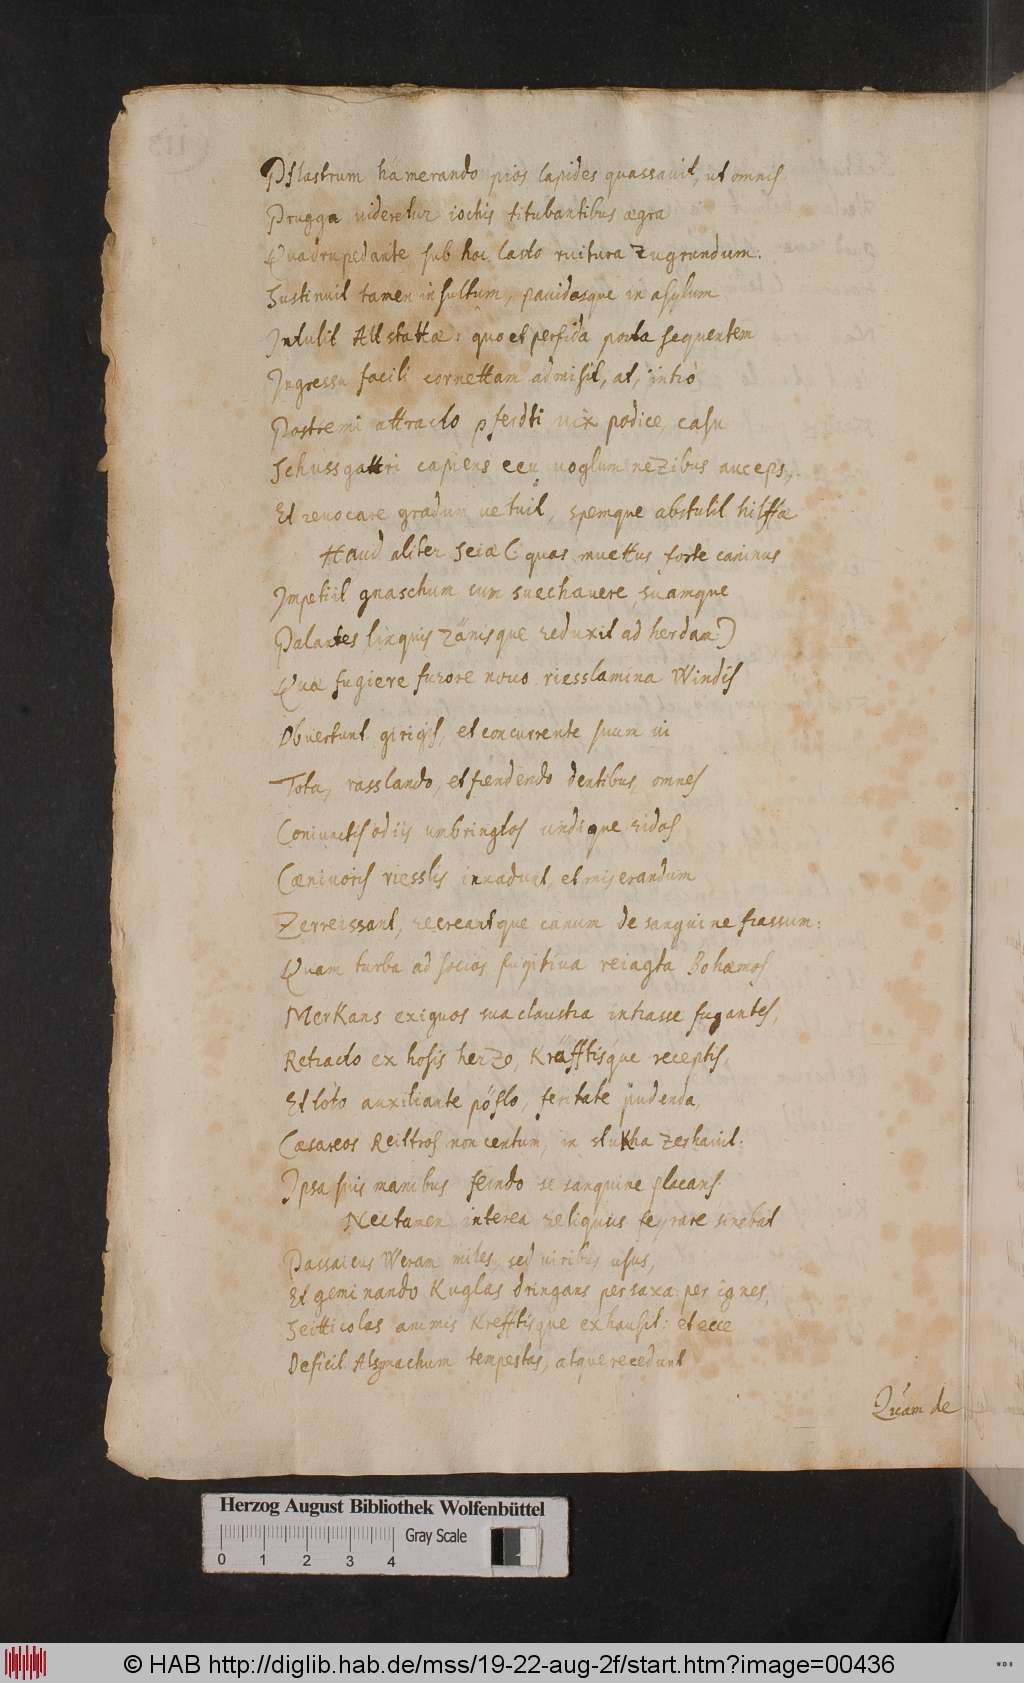 Pflastrum hämerando pios lapides quassavit, ut omnis
Prugga videretur iochis titubantibus ægra
Quadrupedante sub hoc lasto ruitura zugrundum.
Sustinuit tamen insultum, pavidosque in asylum
Intulit Altstattæ: quo et perfida porta sequentem
Ingressu facili cornettam admisit, at, intrò
Postremi attracto pferdti vix podice, casu
Schussgattri capiens ceu voglum nezibus auceps,
Et revocare gradum vetuit, spemque abstulit hilffæ
Haud aliter Seiæ (quas muettus forte caninus
Impetiit gnaschum cum suechavere, suamque
Palantes linquis Zänisque reduxit ad herdam)
Quæ fugiere furore novo riesslamina Windis
Obvertunt girigis, et concurrente suum vi
Tota, rasslando, et fiendendo dentibus, omnes
Coniunctis odiis umbringtos undique ridos
Cænivoris riesslis invadunt, et miserandum
Zerreissant, recreantque canum de sanguine frassum:
Quam turba ad socios fugitiva veiagta Bohæmos
Merkans exiguos sua claustra intrasse fugantes,
Retracto ex hosis herzo, Kräfftisque receptis
Et toto auxiliante pöflo, feritate pudenda,
Cæsareos Reittros non centum, in stukha zerhavit:
Ipsa suis manibus feindo se sanguine placans.
Nec tamen interea reliquus feyrare sinebat
Passaicus Weram miles, sed viribus usus,
Et geminando Kuglas dringans per saxa per ignes,
Seitticolas animis Krefftisque exhausit: et ecce
Deficit Alsmachum tempestas, atque recedunt
Quàm de
Herzog August Bibliothek Wolfenbüttel
0 1 2 3 4 Gray Scale
© HAB http://diglib.hab.de/mss/19-22-aug-2f/start.htm?image=00436